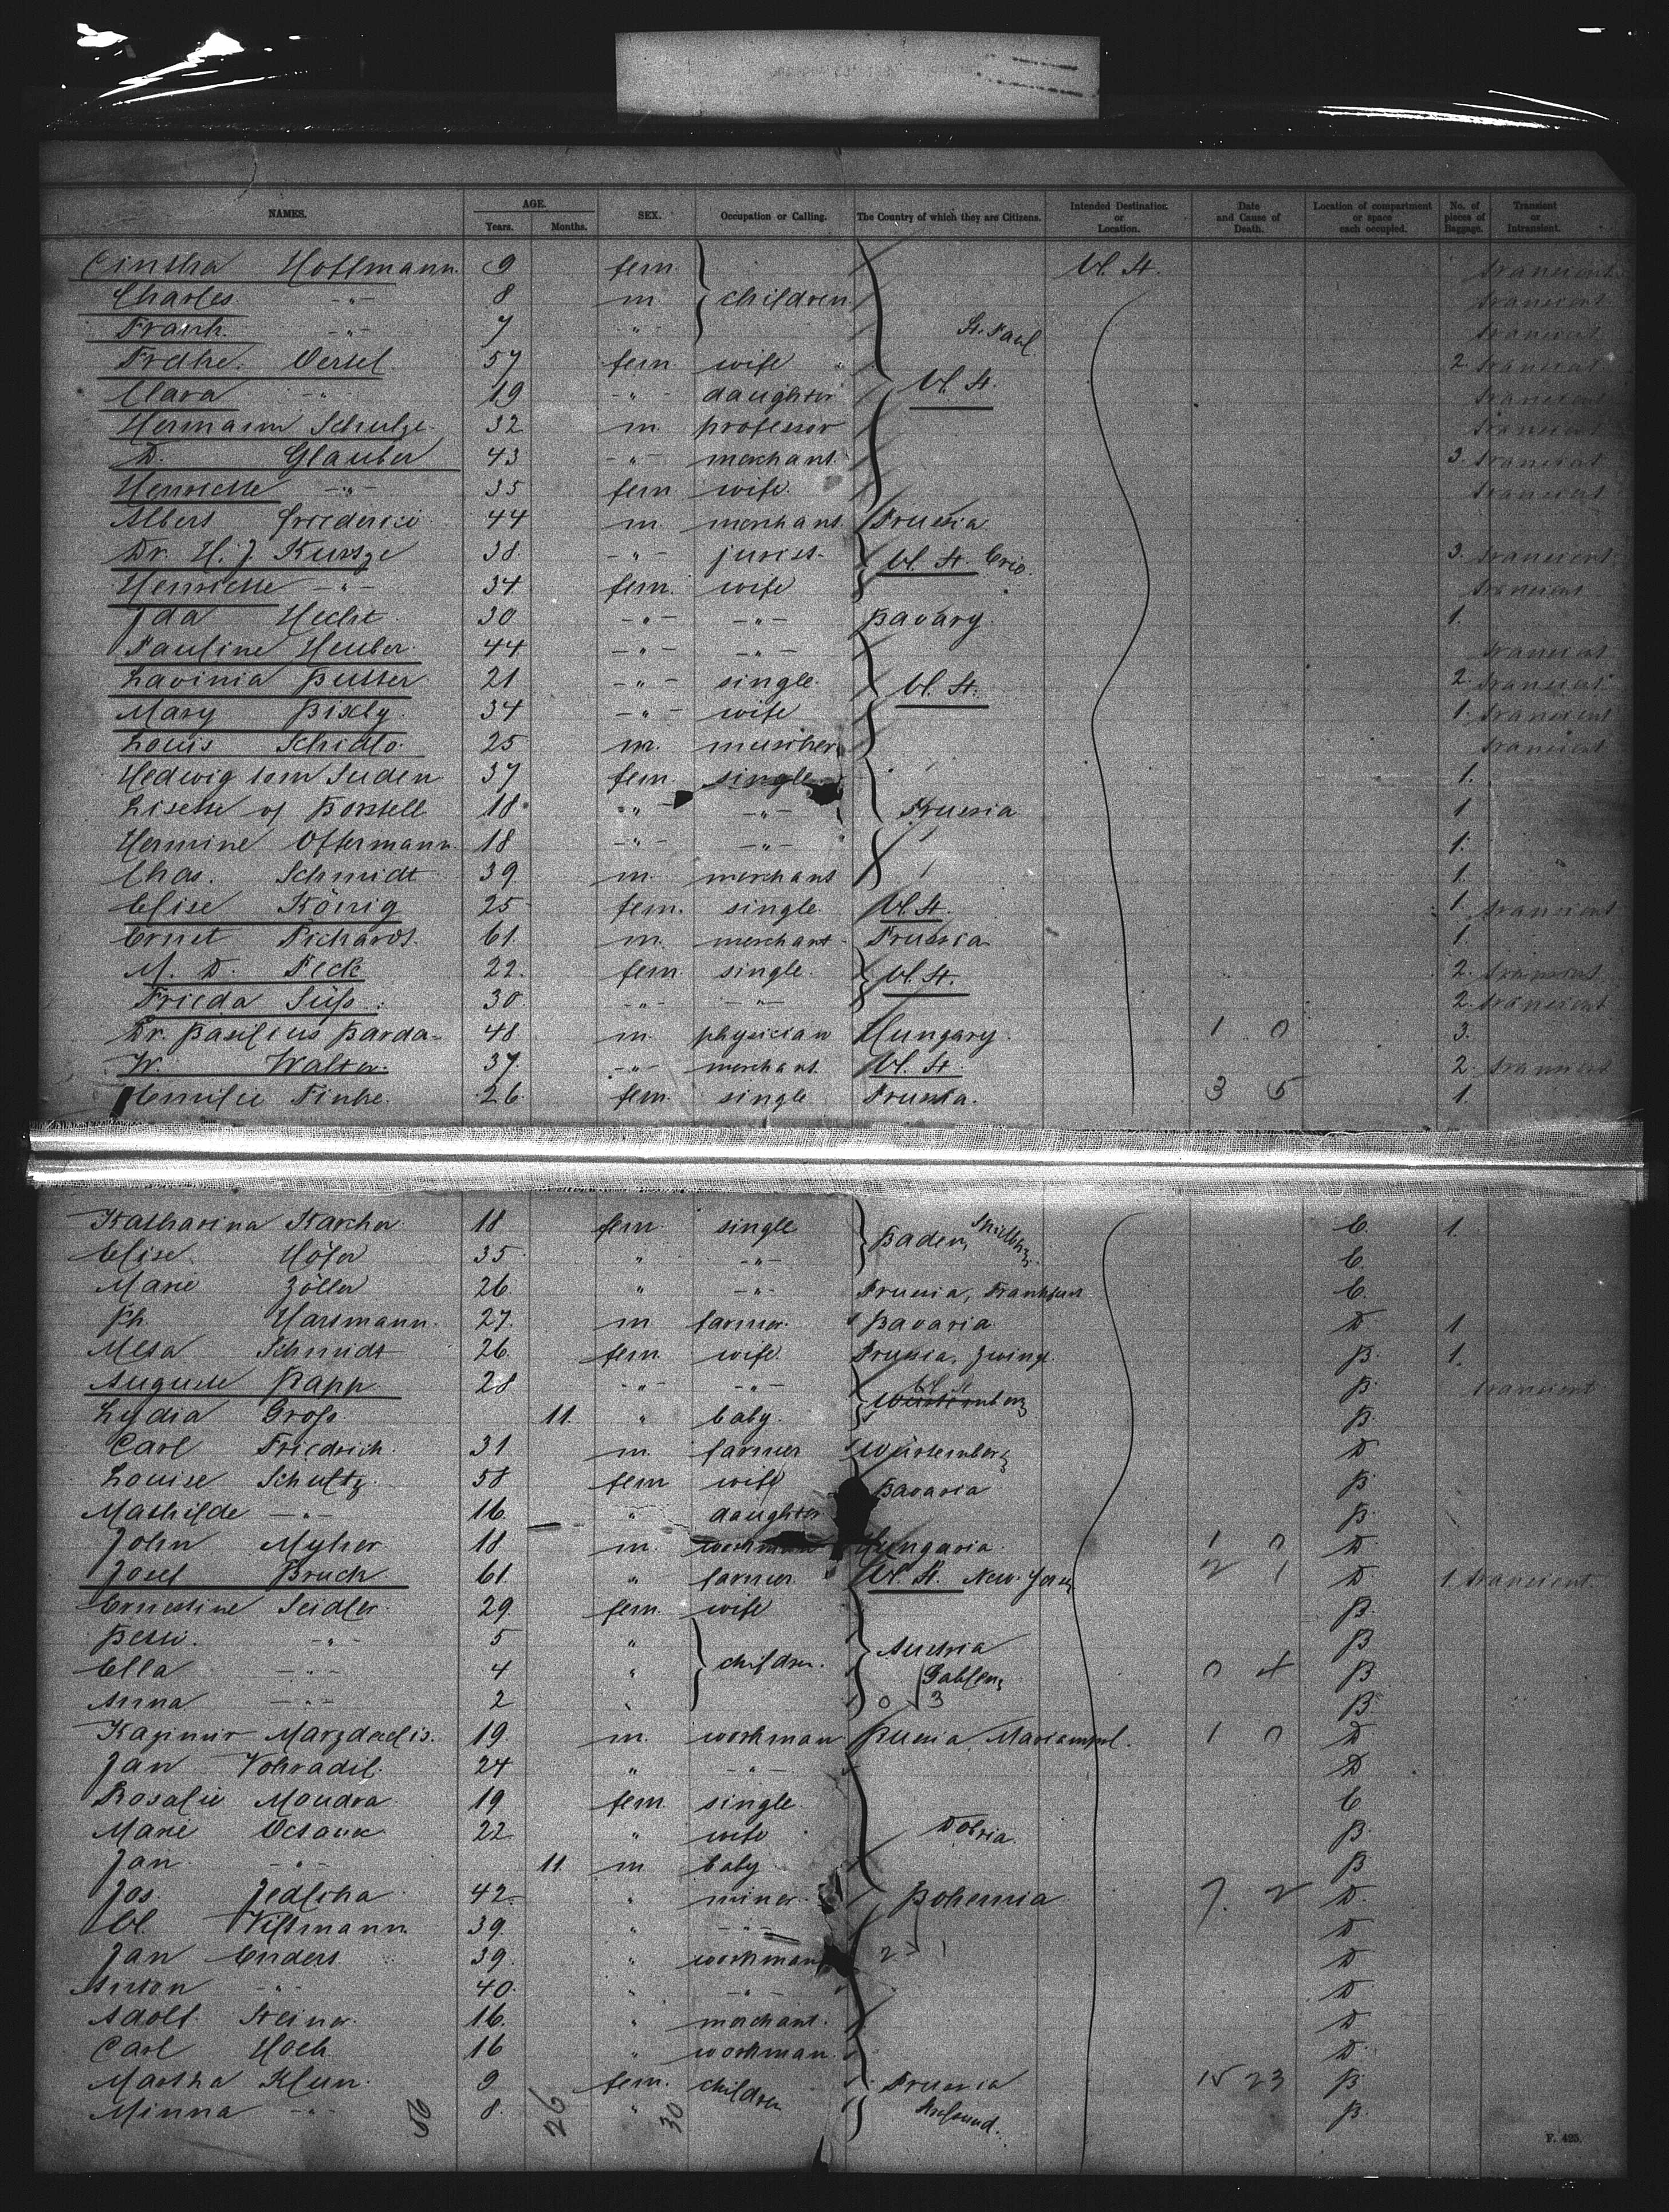 NAMES. AGE. Years. Months. SEX. Occupation or Calling. The Country of which they are Citizens. Intended Destination or Location. Date and Cause of Death. Location of compartment or space each occupied. No. of pieces of Baggage. Transient or Intransient.
Hoffmann. 9 fem. U. St. transient
Charles -"- 8 m. children transient
Frank. -"- 7 -"- St. Paul. transient
57 fem. wife 2. transient
Clara -"- 19 -"- daughter U. St. transient
Hermann Schulze 32 m. professor transient
D. Glauber 43 -"- merchant 3. transient
Henriette -"- 35 fem. wife. transient
Albert Friederici 44 m. merchant. Prussia
Dr. H. J. 38. -"- jurist U. St. 3. transient
Henriette -"- 34 fem. wife transient
Ida Hecht 30 -"- -"- Bavary. 1.
Pauline Heuber 44 -"- -"- transient
Lavinia 21 -"- single. U. St. 2. transient
Mary Bixby. 34 -"- wife 1. transient
Louis Schidlo. 25 m. transient
Hedwig tom Suden 37 fem. single 1.
Lisette v Borstell 18 -"- -"- Prussia 1
Hermine Oftermann. 18 -"- -"- 1.
Chas. Schmidt 39 m. merchant 1.
Elise König 25 fem. single U. St. 1. transient
Ernst 61. m. merchant Prussia 1.
M. D. Peck 22. fem. single. U. St. 2. transient
Frieda Süß. 30. -"- -"- 2. transient
Dr. Basilius Barda- 48 m. physician Hungary. 1 0 3.
W. Walter. 37. -"- merchant. U. St. 2. transient
Emilie Finke. 26. fem. single Prussia. 3 5 1.
Katharina Karcher 18 fem. single Baden, C. 1
Elise Höfer 35 " -"- C.
Marie Zöller 26 " -"- Prussia, Frankfurt C.
Ph. Hartmann. 27. m. farmer. Bavaria D 1
Meta Schmidt 26. fem. wife. Prussia, B. 1.
Auguste Rapp 28 -"- -"- U. St. B. transient
Lydia Groß. 11. " baby. B.
Carl Friedrich. 31 m. farmer Würtemberg D
Louise Schultz. 58 fem. wife Bavaria B
Mathilde -"- 16. " daughter B.
John 18 m. workman Hungaria. 1 0 D.
Josef Bruck 61. " farmer. U. St. New-York 2 1 D. 1 transient.
Ernestine Seidler. 29. fem. wife B.
-"- 5 " children. Austria B
Ella -"- 4 " 0 4 B
Anna -"- 2 " 0 3 B.
19. m. workman Russia Mariampol. 1 0 D
Jan 24 " -"- D
Rosalie Moudra 19 fem. single. C
Marie 22 " wife B.
Jan -"- 11. m. baby B
Jos. Jedlicka 42. " miner. Bohemia 7. 2 D.
39. " -"- D
Jan Enders 39. " workman 2 1 D
Anton -"- 40. " -"- D.
Adolf. Steiner. 16. " merchant. D
Carl Hoch 16 " workman. D.
Martha Klun. 9 fem. children Prussia 15 23 B
Minna -"- 8. " Stralsund. B.
56 26 30
F. 425.